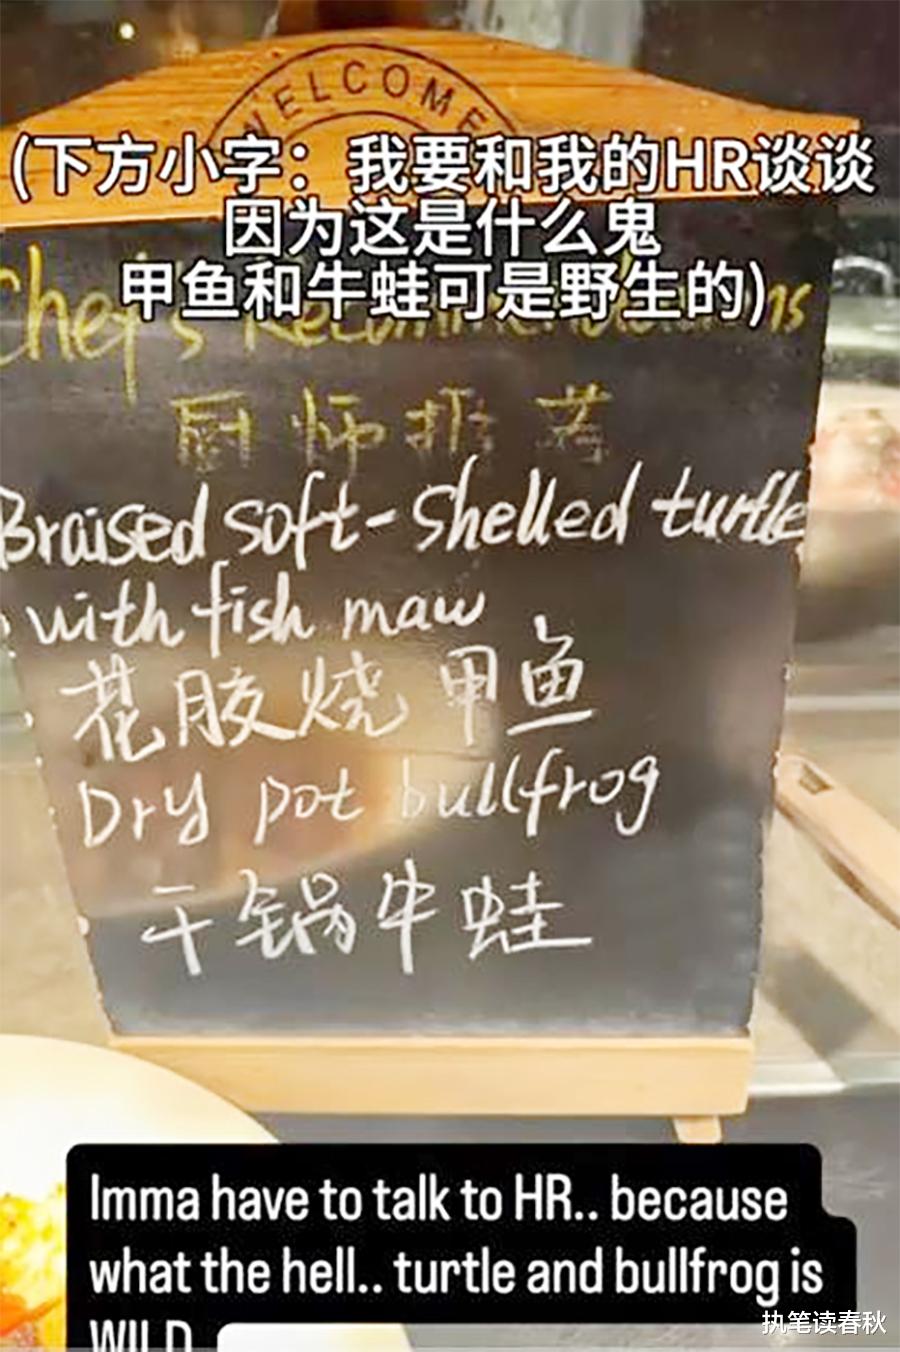 WELCOME
(下方小字：我要和我的HR谈谈
因为这是什么鬼
甲鱼和牛蛙可是野生的)
Chef's Recommendations
厨师推荐
Braised soft-shelled turtle
with fish maw
花胶烧甲鱼
Dry pot bullfrog
干锅牛蛙
Imma have to talk to HR.. because
what the hell.. turtle and bullfrog is
WILD
执笔读春秋